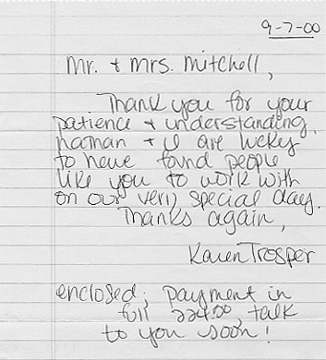 9-7-00
Mr. + Mrs. Mitchell,
Thank you for your
patience + understanding.
Nathan + I are lucky
to have found people
like you to work with
on our very special day.
Thanks again,
Karen Trosper
enclosed; payment in
full 224.00, talk
to you soon!